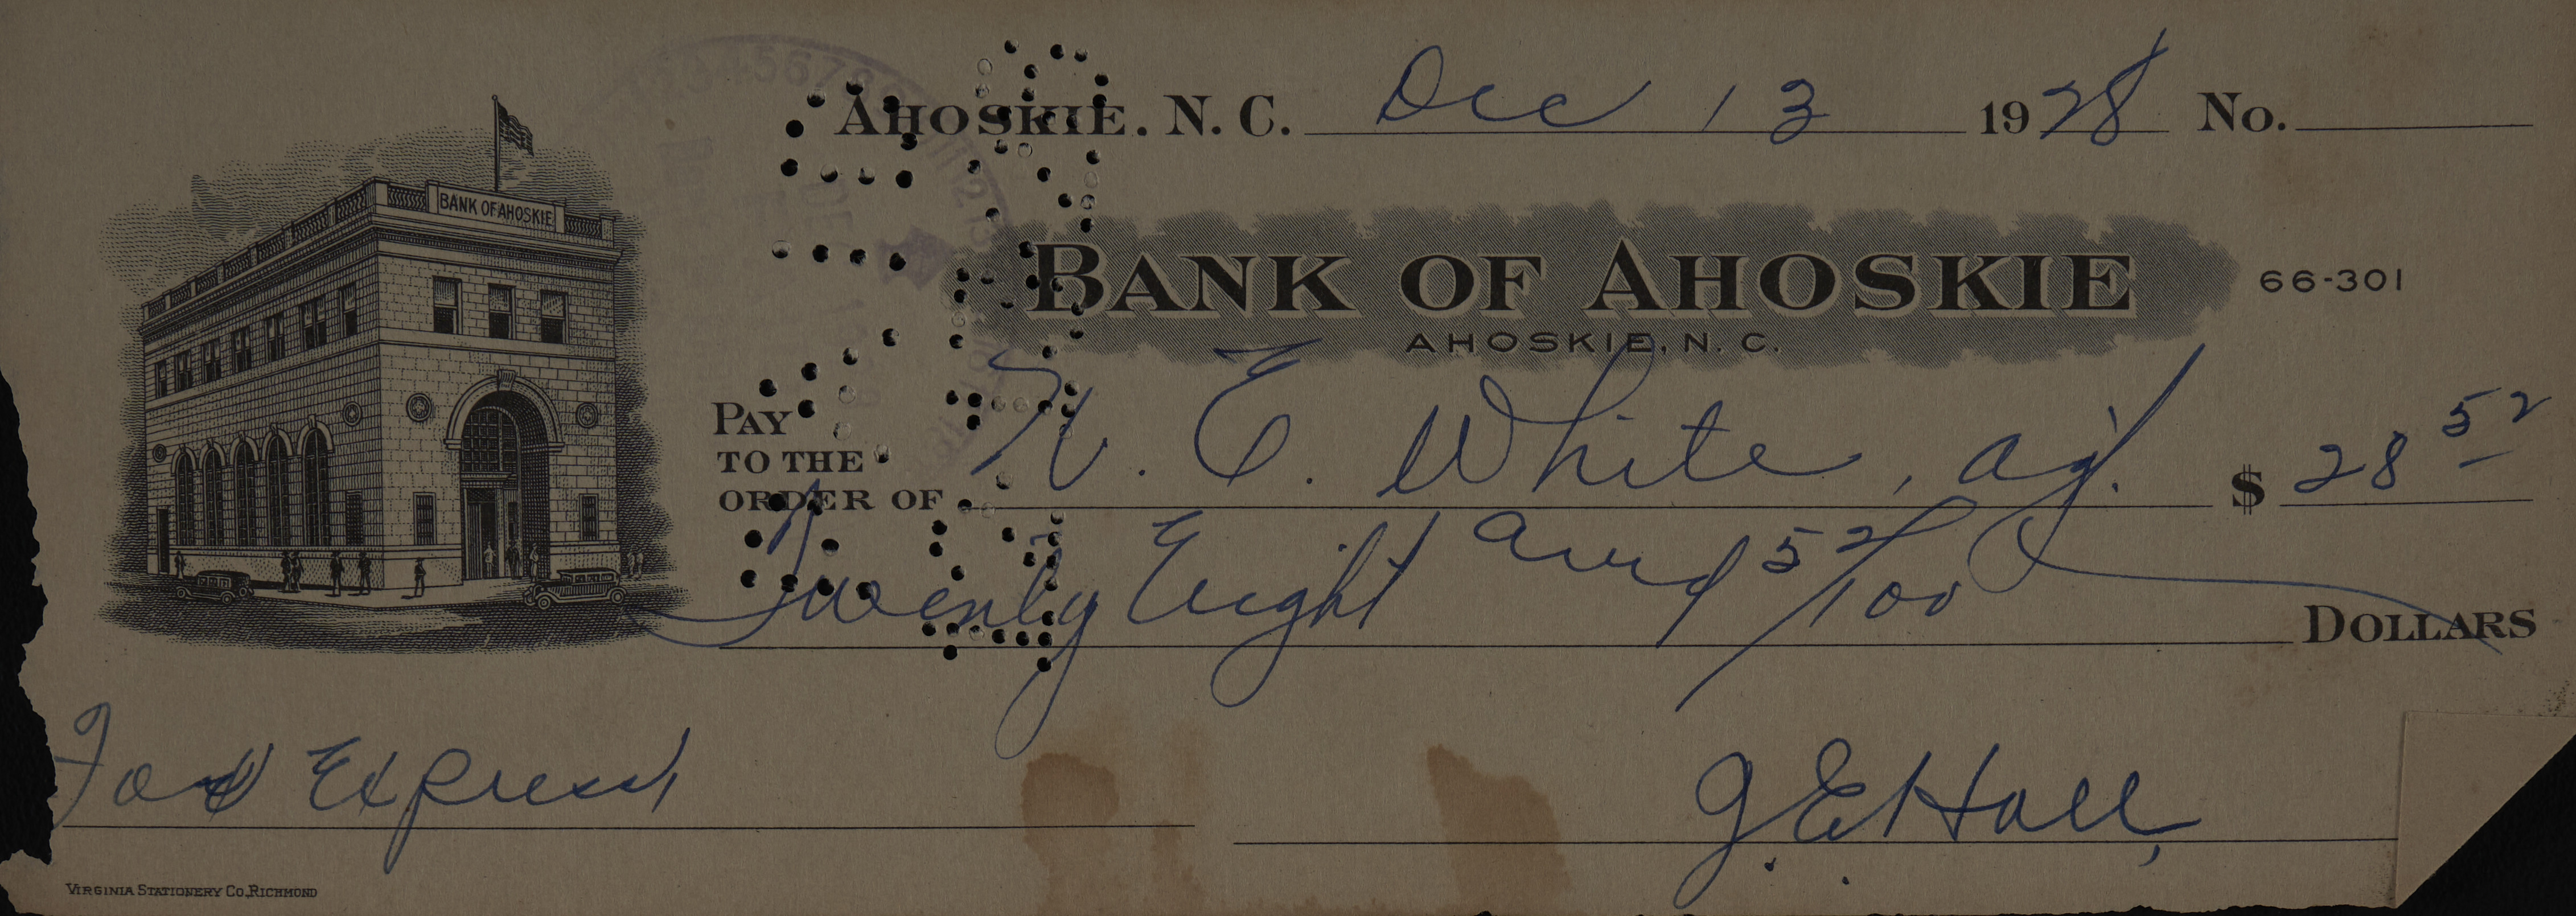 AHOSKIE, N. C. Dec 13 1928 No.
BANK OF AHOSKIE
BANK OF AHOSKIE 66-301
AHOSKIE, N. C.
PAY TO THE ORDER OF W. E. White, agt. $ 28 52
Twenty Eight and 52/100 DOLLARS
For Express
G. E. Hall
VIRGINIA STATIONERY CO., RICHMOND